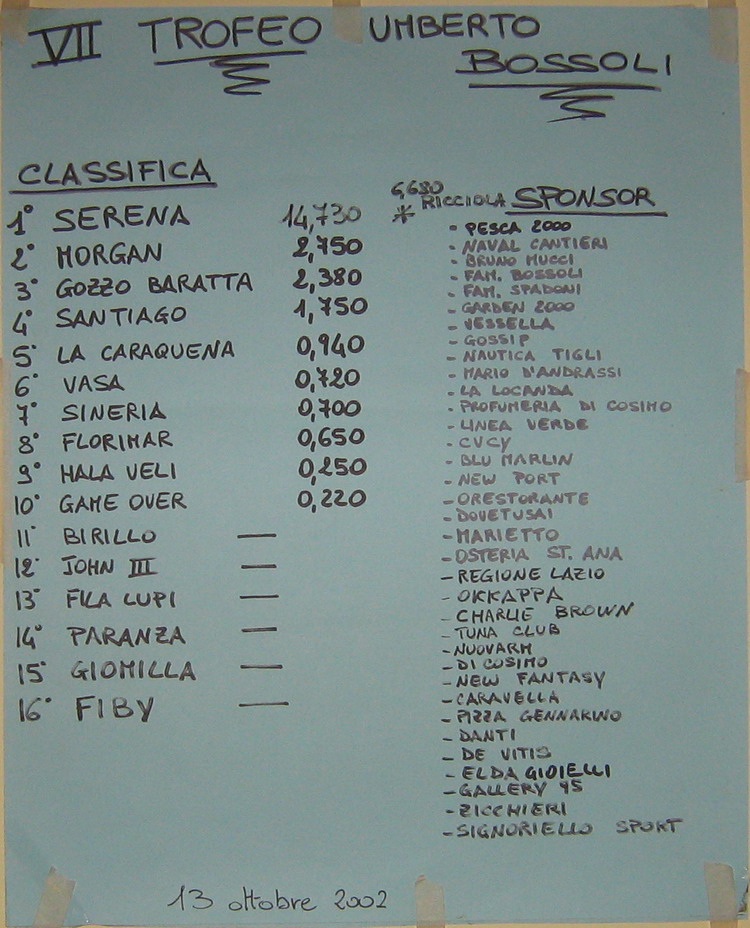 VII TROFEO UMBERTO
BOSSOLI
CLASSIFICA
1° SERENA 14,730
2° MORGAN 2,750
3° GOZZO BARATTA 2,380
4° SANTIAGO 1,750
5° LA CARAQUENA 0,940
6° VASA 0,720
7° SINERIA 0,700
8° FLORIMAR 0,650
9° HALA VELI 0,250
10° GAME OVER 0,220
11° BIRILLO —
12° JOHN III —
13° FILA LUPI —
14° PARANZA —
15° GIOMILLA —
16° FIBY —
6,680
* RICCIOLA SPONSOR
- PESCA 2000
- NAVAL CANTIERI
- BRUNO MUCCI
- FAM. BOSSOLI
- FAM. SPADONI
- GARDEN 2000
- VESSELLA
- GOSSIP
- NAUTICA TIGLI
- MARIO D'ANDRASSI
- LA LOCANDA
- PROFUMERIA DI COSIMO
- LINEA VERDE
- CUCY
- BLU MARLIN
- NEW PORT
- ORESTORANTE
- DOVETUSAI
- MARIETTO
- OSTERIA ST. ANA
- REGIONE LAZIO
- OKKAPPA
- CHARLIE BROWN
- TUNA CLUB
- NUOVARM
- DI COSIMO
- NEW FANTASY
- CARAVELLA
- PIZZA GENNARINO
- DANTI
- DE VITIS
- ELDA GIOIELLI
- GALLERY 95
- ZICCHIERI
- SIGNORIELLO SPORT
13 ottobre 2002